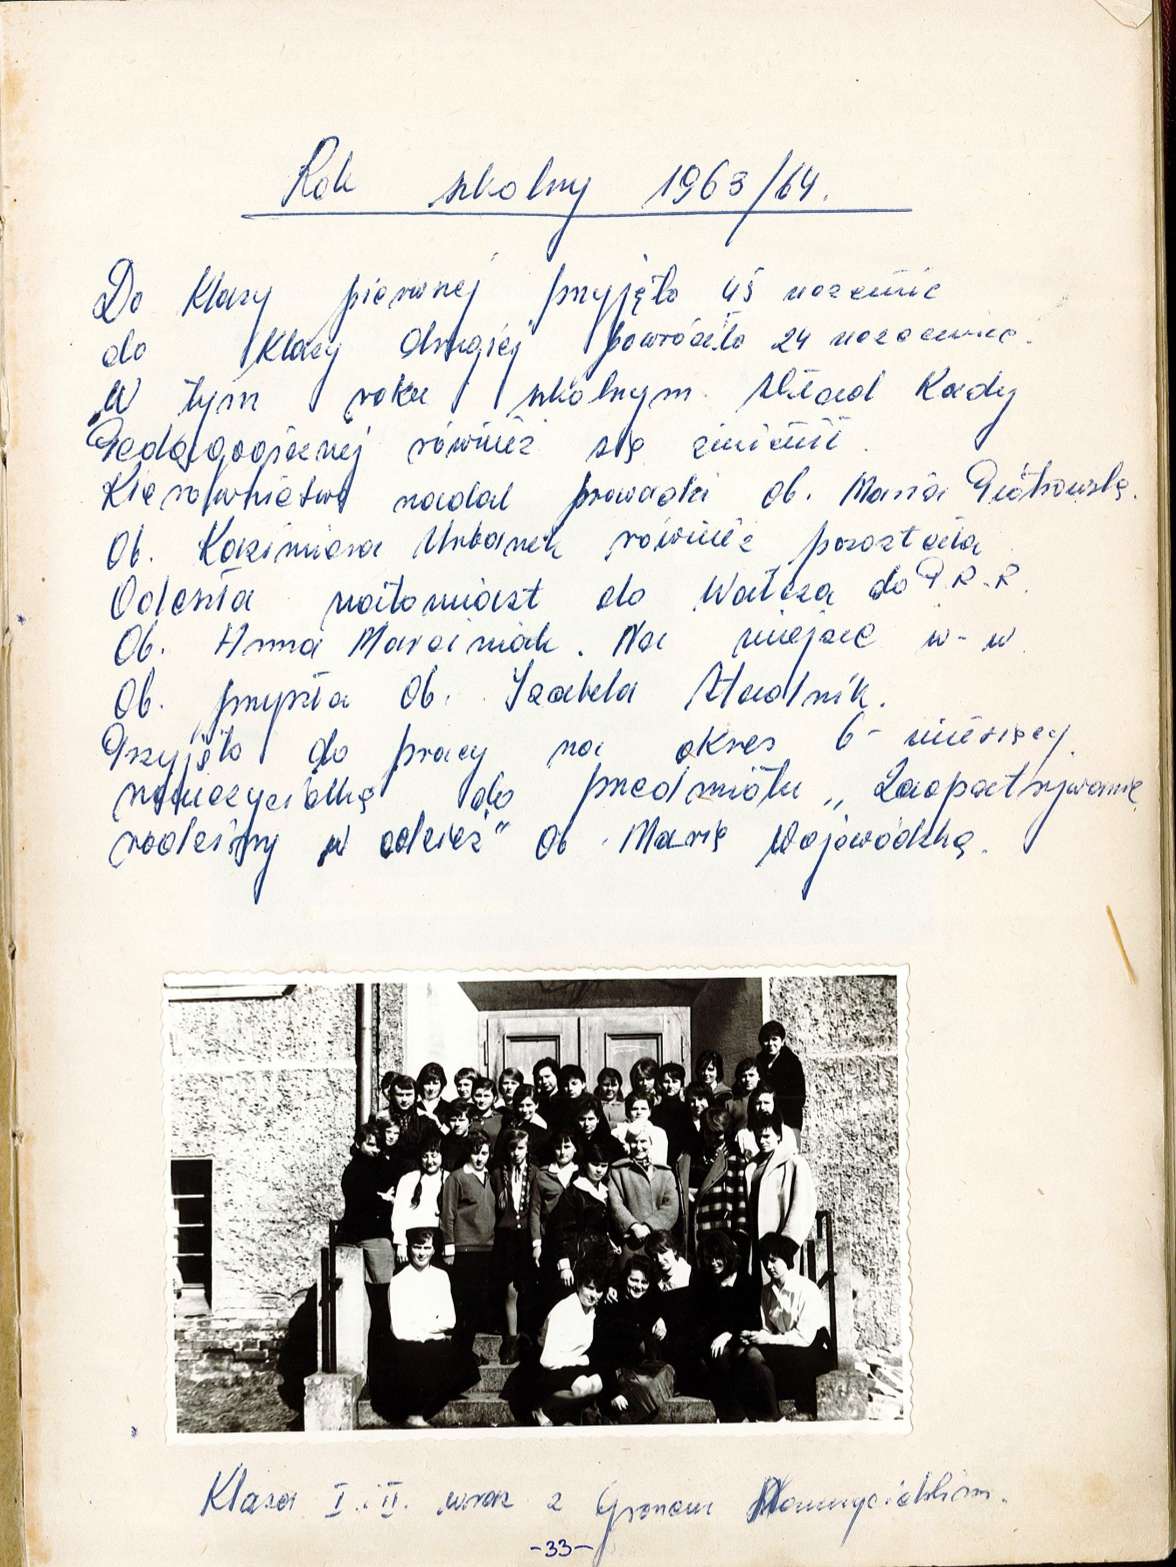 Rok szkolny 1963/64.
Do klasy pierwszej przyjęto 45 uczennic
do klasy drugiej powróciło 24 uczennice.
W tym roku szkolnym skład Rady
Pedagogicznej również się zmienił.
Kierownictwo nadal prowadzi ob. Maria Piotrowska.
Ob. Kazimiera Urbanek również pozostała
Odeszła natomiast do Wałcza do P.R.R.
Ob. Anna Marciniak. Na miejsce w-w
Ob. przyszła Ob. Izabela Stadnik.
Przyjęto do pracy na okres 6-miesięcy
nauczycielkę do przedmiotu „Zaopatrywanie
rodziny w odzież" Ob. Marię Wojewódzką.
Klasa I i II wraz z Gronem Nauczycielskim.
-33-